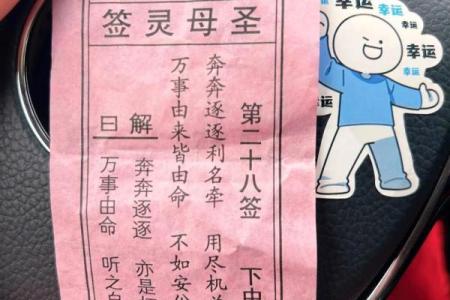 圣母灵签
第二十八签 下中
奔奔逐逐利名牵 用尽机
万事由来皆由命 不如安
解曰
奔奔逐逐 亦是
万事由命 听之自
幸运
幸运
幸运
幸运
幸运
幸运